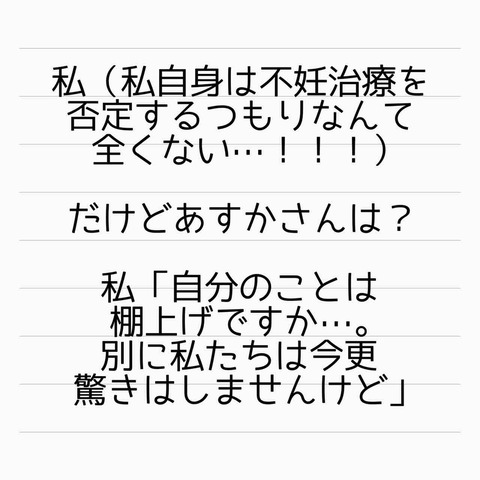 私（私自身は不妊治療を
否定するつもりなんて
全くない…！！！）
だけどあすかさんは？
私「自分のことは
棚上げですか…。
別に私たちは今更
驚きはしませんけど」